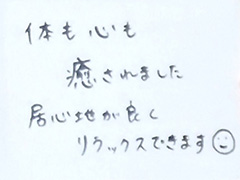 体も心も
癒されました
居心地が良く
リラックスできます